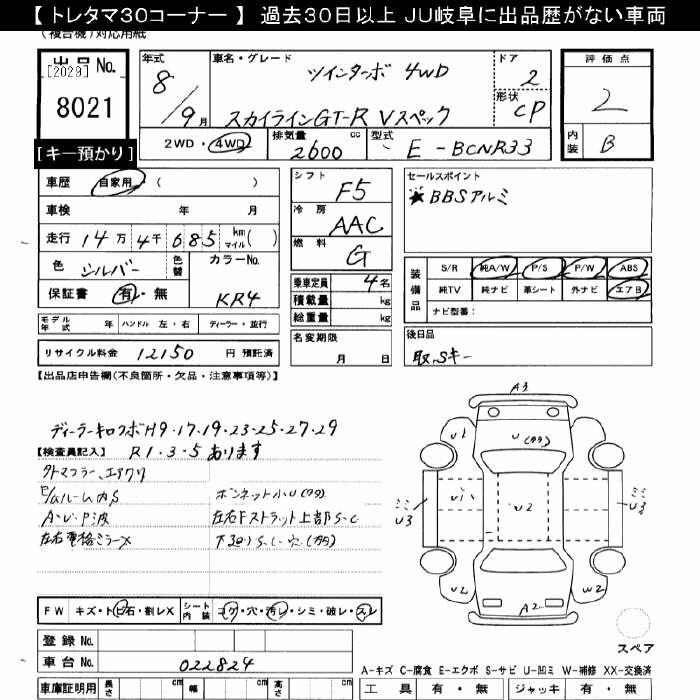 【 トレタマ30コーナー 】 過去30日以上 JU岐阜に出品歴がない車両
(複合機) 対応用紙
出品 No.
[2029]
8021
[キー預かり]
年式
8/9月
車名・グレード
ツインターボ 4WD
スカイラインGT-R Vスペック
ドア
2
形状
CP
評価点
2
内装
B
2WD・4WD
排気量
2600 cc
型式
E-BCNR33
車歴 自家用 ( )
車検 年 月
走行 14万 4千 685 km マイル ( )
色 シルバー 色替
カラーNo.
KR4
保証書 有・無
シフト
F5
冷房
AAC
燃料
G
乗車定員 4名
積載量 kg
総重量 kg
名変期限
月 日
セールスポイント
★BBSアルミ
装備品
S/R 純A/W P/S P/W ABS
純TV 純ナビ 革シート 外ナビ エアB
ナビ型番:
モデル年式 年 ハンドル 左・右 ディーラー・並行
リサイクル料金 12150 円 預託済
後日品
取.Sキー
【出品店申告欄(不良箇所・欠品・注意事項等)】
ディーラーキロクボH9・17・19・23・25・27・29
【検査員記入】 R1・3・5 あります
A・U・P波
左右電格ミラーX
左右Fストラット上部S-C
A3
U1
U1
U2
U3
U3
U2
W2
A2
FW キズ・トビ石・割レX
シート内装 コゲ・穴・汚レ・シミ・破レ・スレ
スペア
登録 No.
車台 No. 022824
A-キズ C-腐食 E-エクボ S-サビ U-凹ミ W-補修 XX-交換済
車庫証明用 長さ cm 幅 cm 高さ cm
工具 有・無 ジャッキ 有・無